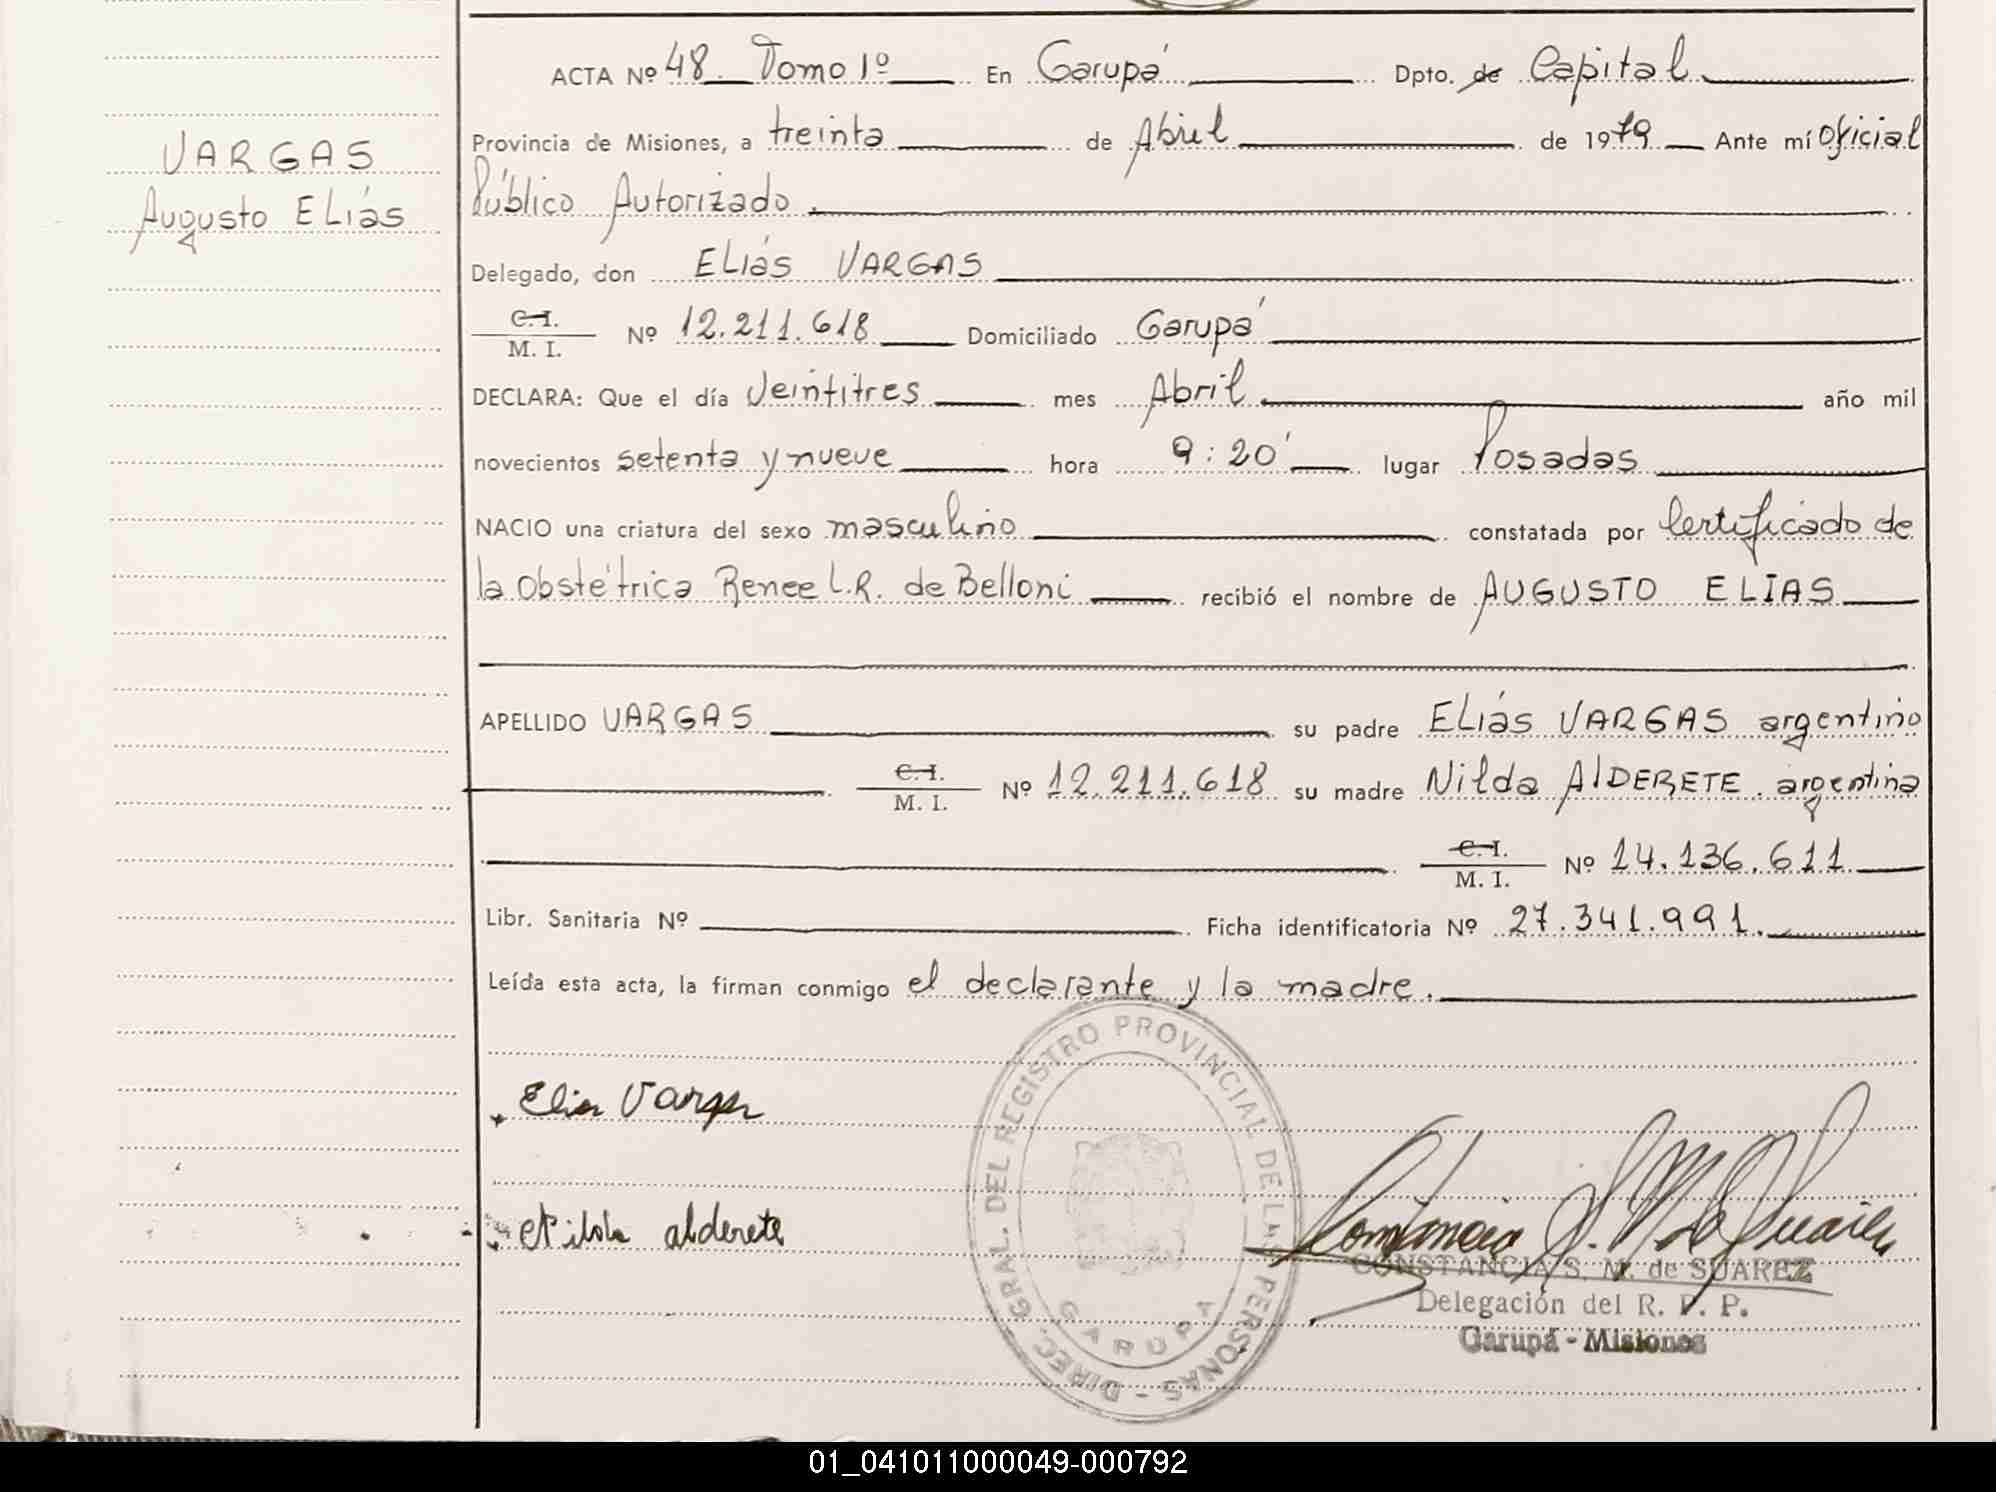 VARGAS
Augusto ELiás
ACTA Nº 48 Tomo 1º En Garupá Dpto. de Capital
Provincia de Misiones, a treinta de Abril de 1979 Ante mí Oficial
Público Autorizado.
Delegado, don ELiás VARGAS
C. I.
M. I. Nº 12.211.618 Domiciliado Garupá
DECLARA: Que el día Veintitres mes Abril año mil
novecientos setenta y nueve hora 9:20' lugar Posadas
NACIO una criatura del sexo masculino constatada por Certificado de
la Obstétrica Renee L.R. de Belloni recibió el nombre de AUGUSTO ELIAS
APELLIDO VARGAS su padre ELiás VARGAS argentino
C. I.
M. I. Nº 12.211.618 su madre Nilda AlDERETE. argentina
C. I.
M. I. Nº 14.136.611
Libr. Sanitaria Nº Ficha identificatoria Nº 27.341.991.
Leída esta acta, la firman conmigo el declarante y la madre.
DIREC. GRAL. DEL REGISTRO PROVINCIAL DE LAS PERSONAS -
GARUPA
Elias Vargas
Nilda alderete
Constancia S. M. de Suarez
CONSTANCIA S. M. de SUAREZ
Delegación del R. P. P.
Garupá - Misiones
01_041011000049-000792